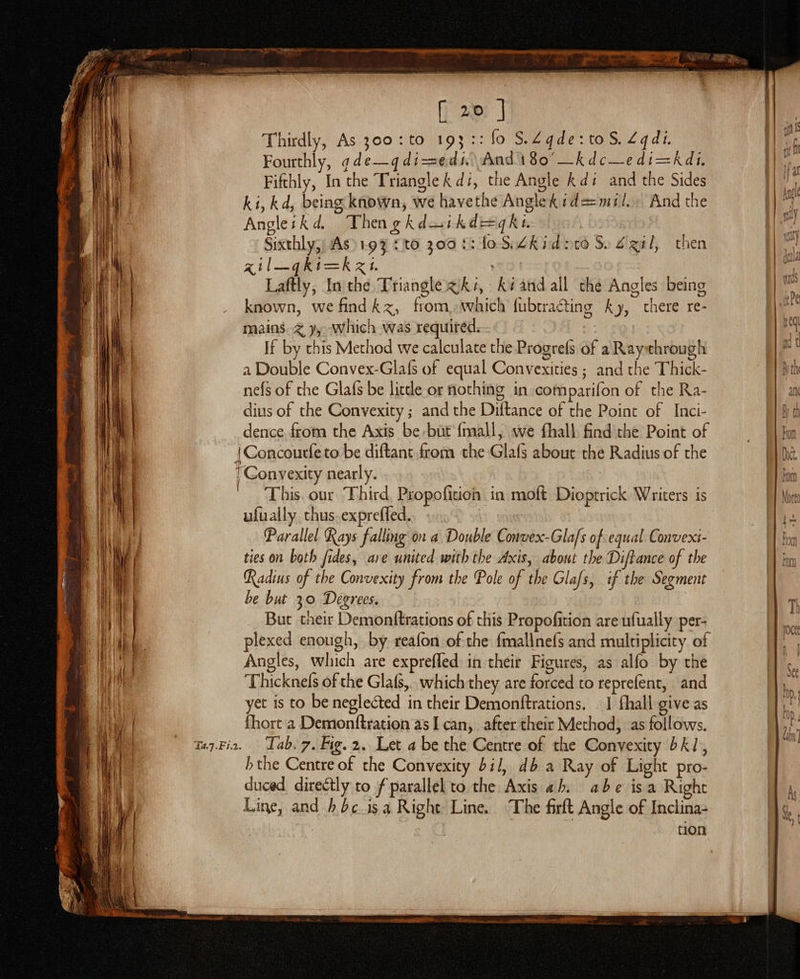 [ 20 ]
Thirdly, As 300 : to 193 :: ſo S.∠qde : to S. ∠qdi.
Fourthly, qde—qdi=edi. And 180°—kdc—edi=kdi.
Fifthly, In the Triangle kdi, the Angle kdi and the Sides
ki, kd, being known, we have the Angle kid=mil. And the
Angle ikd. Then gkd—ikd=qki.
Sixthly, As 193 : to 300 :: ſo S.∠kid : to S. ∠zil, then
zil—qki=kzi.
Laſtly, In the Triangle zki, ki and all the Angles being
known, we find kz, from which ſubtracting ky, there re-
mains z y, which was required.
If by this Method we calculate the Progreſs of a Ray through
a Double Convex-Glaſs of equal Convexities ; and the Thick-
neſs of the Glaſs be little or nothing in compariſon of the Ra-
dius of the Convexity ; and the Diſtance of the Point of Inci-
dence from the Axis be but ſmall, we ſhall find the Point of
Concourſe to be diſtant from the Glaſs about the Radius of the
Convexity nearly.
This our Third Propoſition in moſt Dioptrick Writers is
uſually thus expreſſed.
Parallel Rays falling on a Double Convex-Glaſs of equal Convexi-
ties on both ſides, are united with the Axis, about the Diſtance of the
Radius of the Convexity from the Pole of the Glaſs, if the Segment
be but 30 Degrees.
But their Demonſtrations of this Propoſition are uſually per-
plexed enough, by reaſon of the ſmallneſs and multiplicity of
Angles, which are expreſſed in their Figures, as alſo by the
Thickneſs of the Glaſs, which they are forced to repreſent, and
yet is to be neglected in their Demonſtrations. I ſhall give as
ſhort a Demonſtration as I can, after their Method, as follows.
Ta.7.Fi2. Tab. 7. Fig. 2. Let a be the Centre of the Convexity bkl,
h the Centre of the Convexity bil, db a Ray of Light pro-
duced directly to f parallel to the Axis ah. abe is a Right
Line, and hbc is a Right Line. The firſt Angle of Inclina-
tion